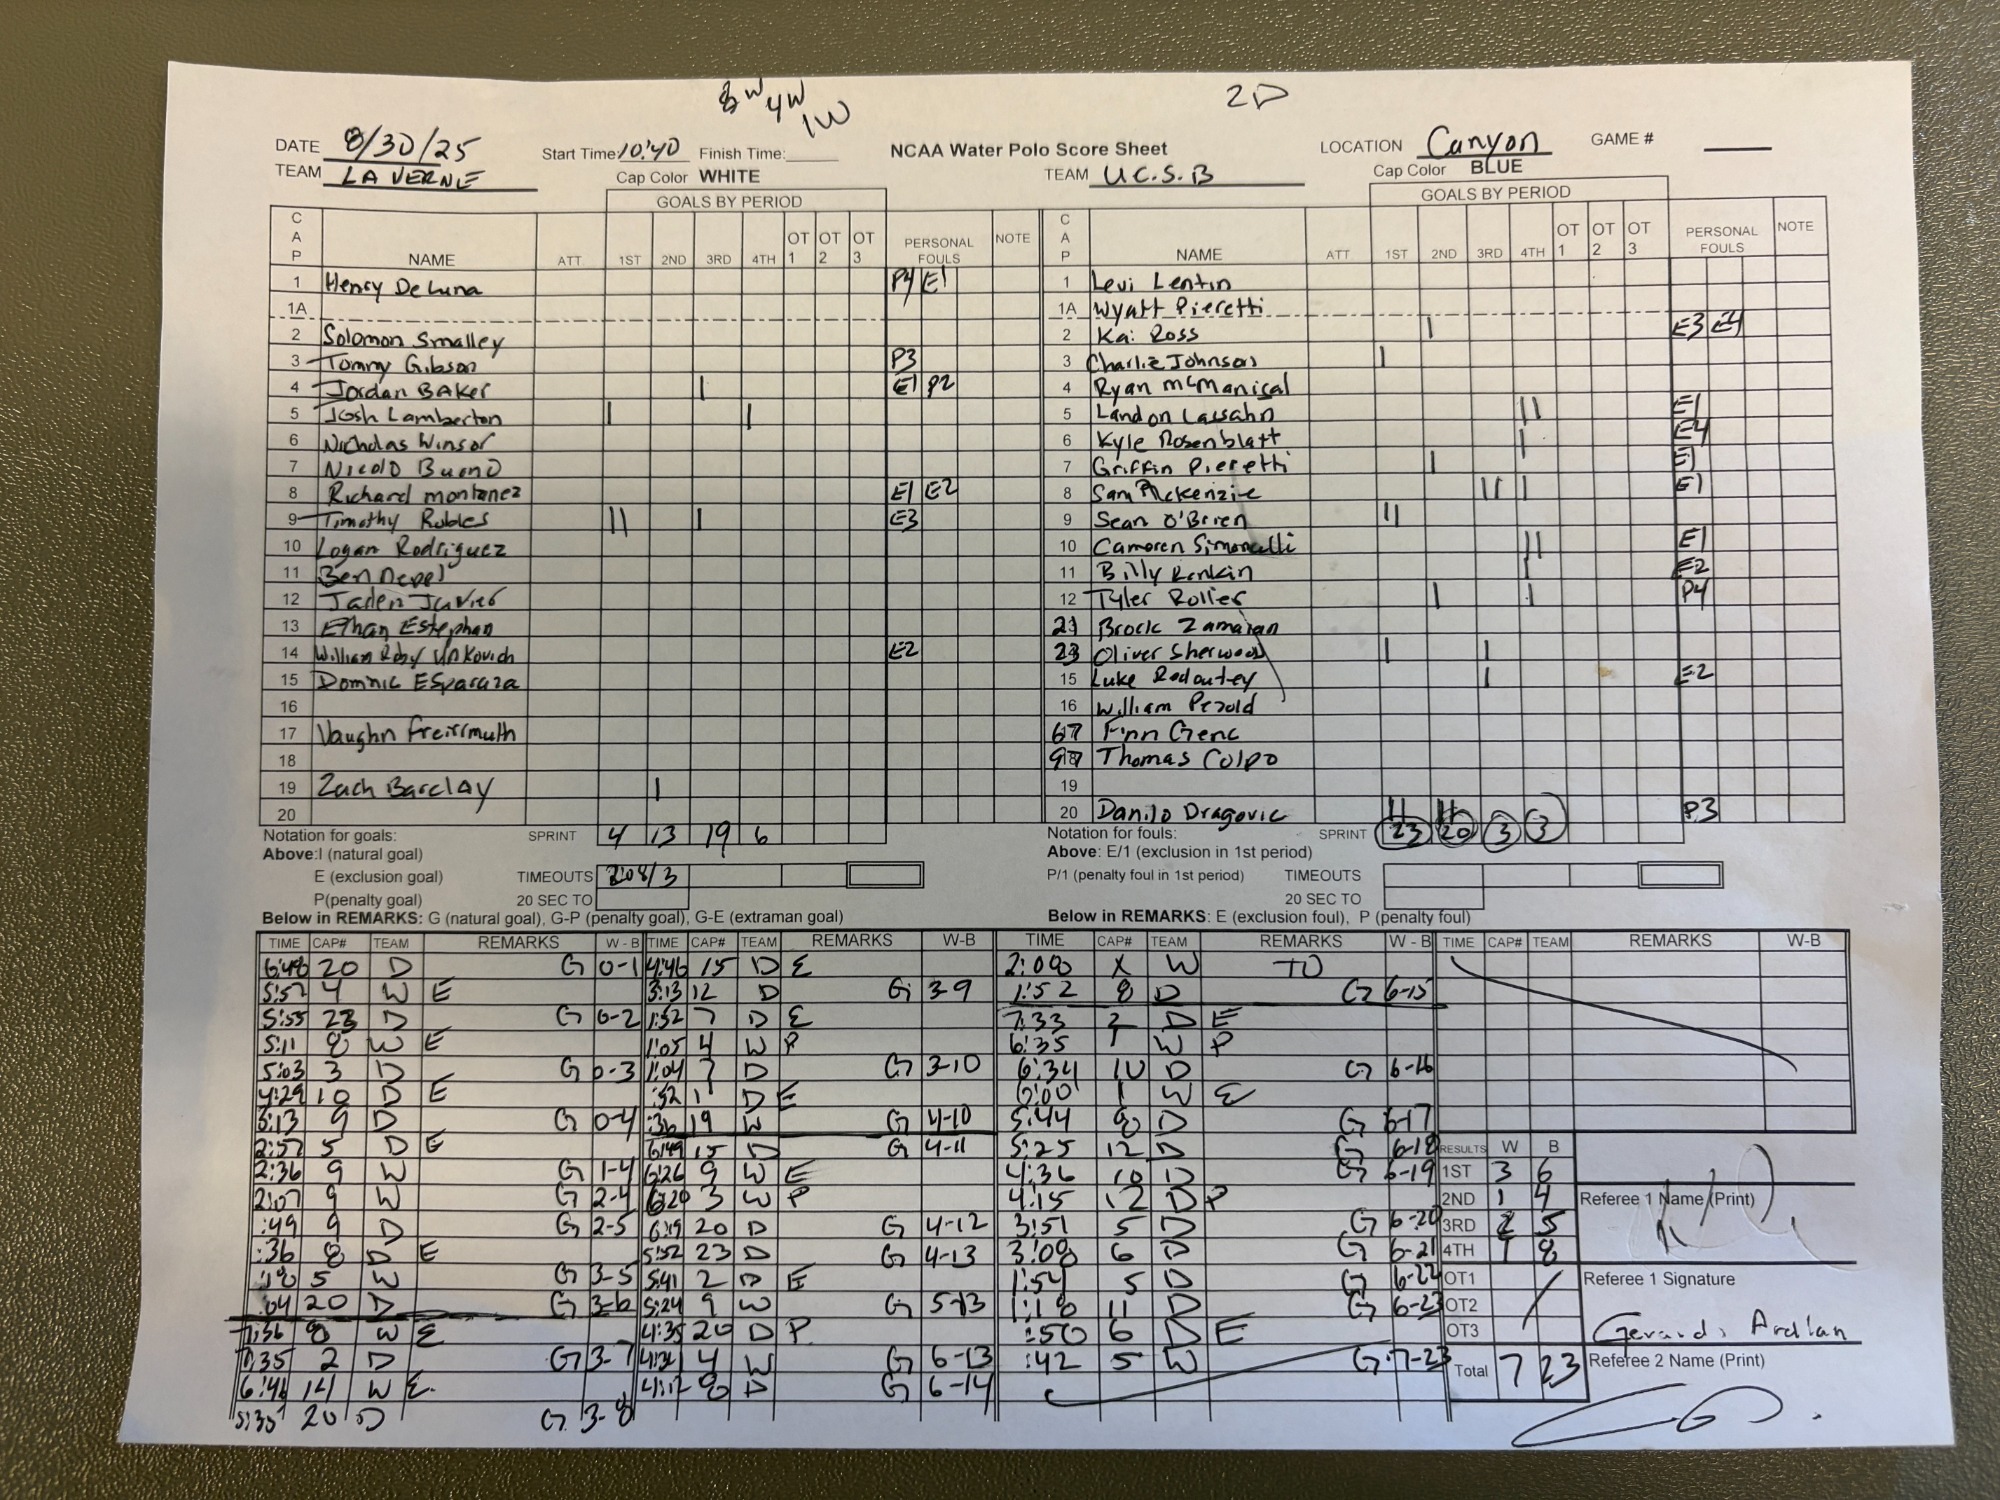 8W 4W 1W 2D
DATE 8/30/25 Start Time: 10:40 Finish Time: NCAA Water Polo Score Sheet LOCATION Canyon GAME #
TEAM LA VERNE Cap Color WHITE TEAM U.C.S.B Cap Color BLUE
GOALS BY PERIOD GOALS BY PERIOD
CAP NAME ATT. 1ST 2ND 3RD 4TH OT 1 OT 2 OT 3 PERSONAL FOULS NOTE CAP NAME ATT. 1ST 2ND 3RD 4TH OT 1 OT 2 OT 3 PERSONAL FOULS NOTE
1 Henry DeLuna P4 E1 1 Levi Lentin
1A 1A Wyatt Pieretti
2 Solomon Smalley 2 Kai Ross | E3 E4
3 Tommy Gibson P3 3 Charlie Johnson |
4 Jordan BAKer | E1 P2 4 Ryan McManigal
5 Josh Lamberton | | 5 Landon Lassahn || E1
6 Nicholas Winsor 6 Kyle Rosenblatt | E4
7 Nicolo Bueno 7 Griffin Pieretti | E1
8 Richard montanez E1 E2 8 Sam Mckenzie || | E1
9 Timothy Robles || | E3 9 Sean O'Brien ||
10 Logan Rodriguez 10 Cameron Simoncelli || E1
11 Ben 11 Billy Rankin | E2
12 Jaden Javier 12 Tyler Rolles | | P4
13 Ethan Estephan 21 Brock Zamaian
14 William Roby Vnkovich E2 23 Oliver Sherwood | |
15 Dominic ESparaza 15 Luke Redoutey | E2
16 16 William Pezold
17 Vaughn Freirmuth 67 Finn Genc
18 97 Thomas Colpo
19 Zach Barclay | 19
20 20 Danilo Dragovic || || | P3
Notation for goals: SPRINT 4 13 19 6 Notation for fouls: SPRINT 23 20 3 3
Above:I (natural goal) Above: E/1 (exclusion in 1st period)
E (exclusion goal) TIMEOUTS 2:08/3 P/1 (penalty foul in 1st period) TIMEOUTS
P(penalty goal) 20 SEC TO 20 SEC TO
Below in REMARKS: G (natural goal), G-P (penalty goal), G-E (extraman goal) Below in REMARKS: E (exclusion foul), P (penalty foul)
TIME CAP# TEAM REMARKS W - B TIME CAP# TEAM REMARKS W-B TIME CAP# TEAM REMARKS W - B TIME CAP# TEAM REMARKS W-B
6:48 20 D G 0-1 4:46 15 D E 2:08 X W TO
5:57 4 W E 3:13 12 D G 3-9 1:52 8 D G 6-15
5:55 23 D G 0-2 1:52 7 D E 7:33 2 D E
5:11 8 W E 1:05 4 W P 6:35 1 W P
5:03 3 D G 0-3 1:04 7 D G 3-10 6:34 10 D G 6-16
4:29 10 D E :52 11 D E 6:00 1 W E
3:13 9 D G 0-4 :36 19 W G 4-10 5:44 8 D G 6-17
2:57 5 D E 6:49 15 D G 4-11 5:25 12 D G 6-18 RESULTS W B
2:36 9 W G 1-4 6:26 9 W E 4:36 10 D G 6-19 1ST 3 6
2:07 9 W G 2-4 6:20 3 W P 4:15 12 D P 2ND 1 4 Referee 1 Name (Print)
:49 9 D G 2-5 6:19 20 D G 4-12 3:51 5 D G 6-20 3RD 2 5
:36 8 D E 5:52 23 D G 4-13 3:08 6 D G 6-21 4TH 1 8
:18 5 W G 3-5 5:41 2 D E 1:54 5 D G 6-22 OT1 Referee 1 Signature
:04 20 D G 3-6 5:24 9 W G 5-13 1:18 11 D G 6-23 OT2
7:36 8 W E 4:35 20 D P :50 6 D E OT3 Gerard Ardlan
7:35 2 D G 3-7 4:34 4 W G 6-13 :42 5 W G 7-23 Total 7 23 Referee 2 Name (Print)
6:46 14 W E 4:12 8 D G 6-14
5:35 20 D G 3-8